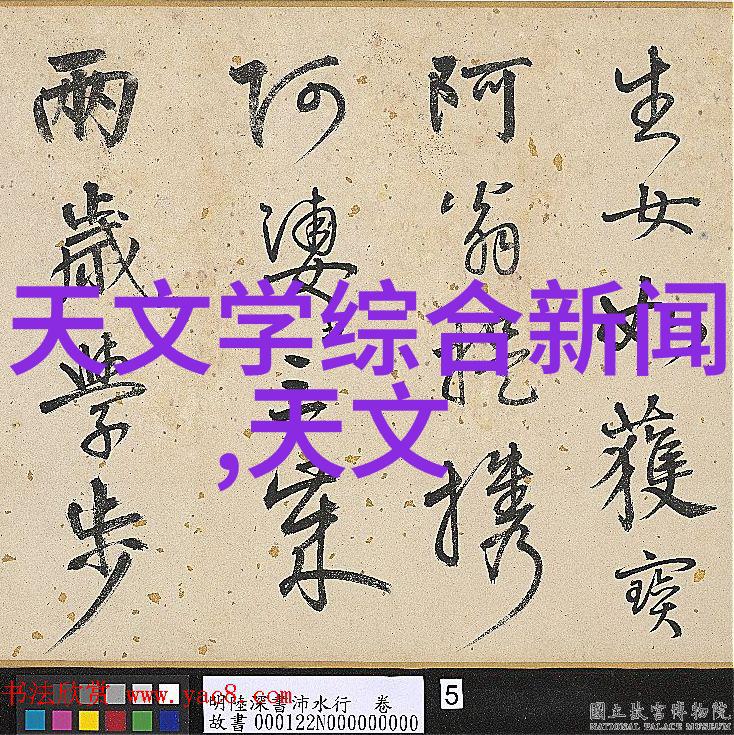 生女如獲寶
阿翁提携
阿婆
兩歲學步
天文学综合新闻
,天文
书法欣赏 www.yac8.com
明陸深書沛水行 卷
故書 000122N000000000
5
國立故宮博物院
NATIONAL PALACE MUSEUM